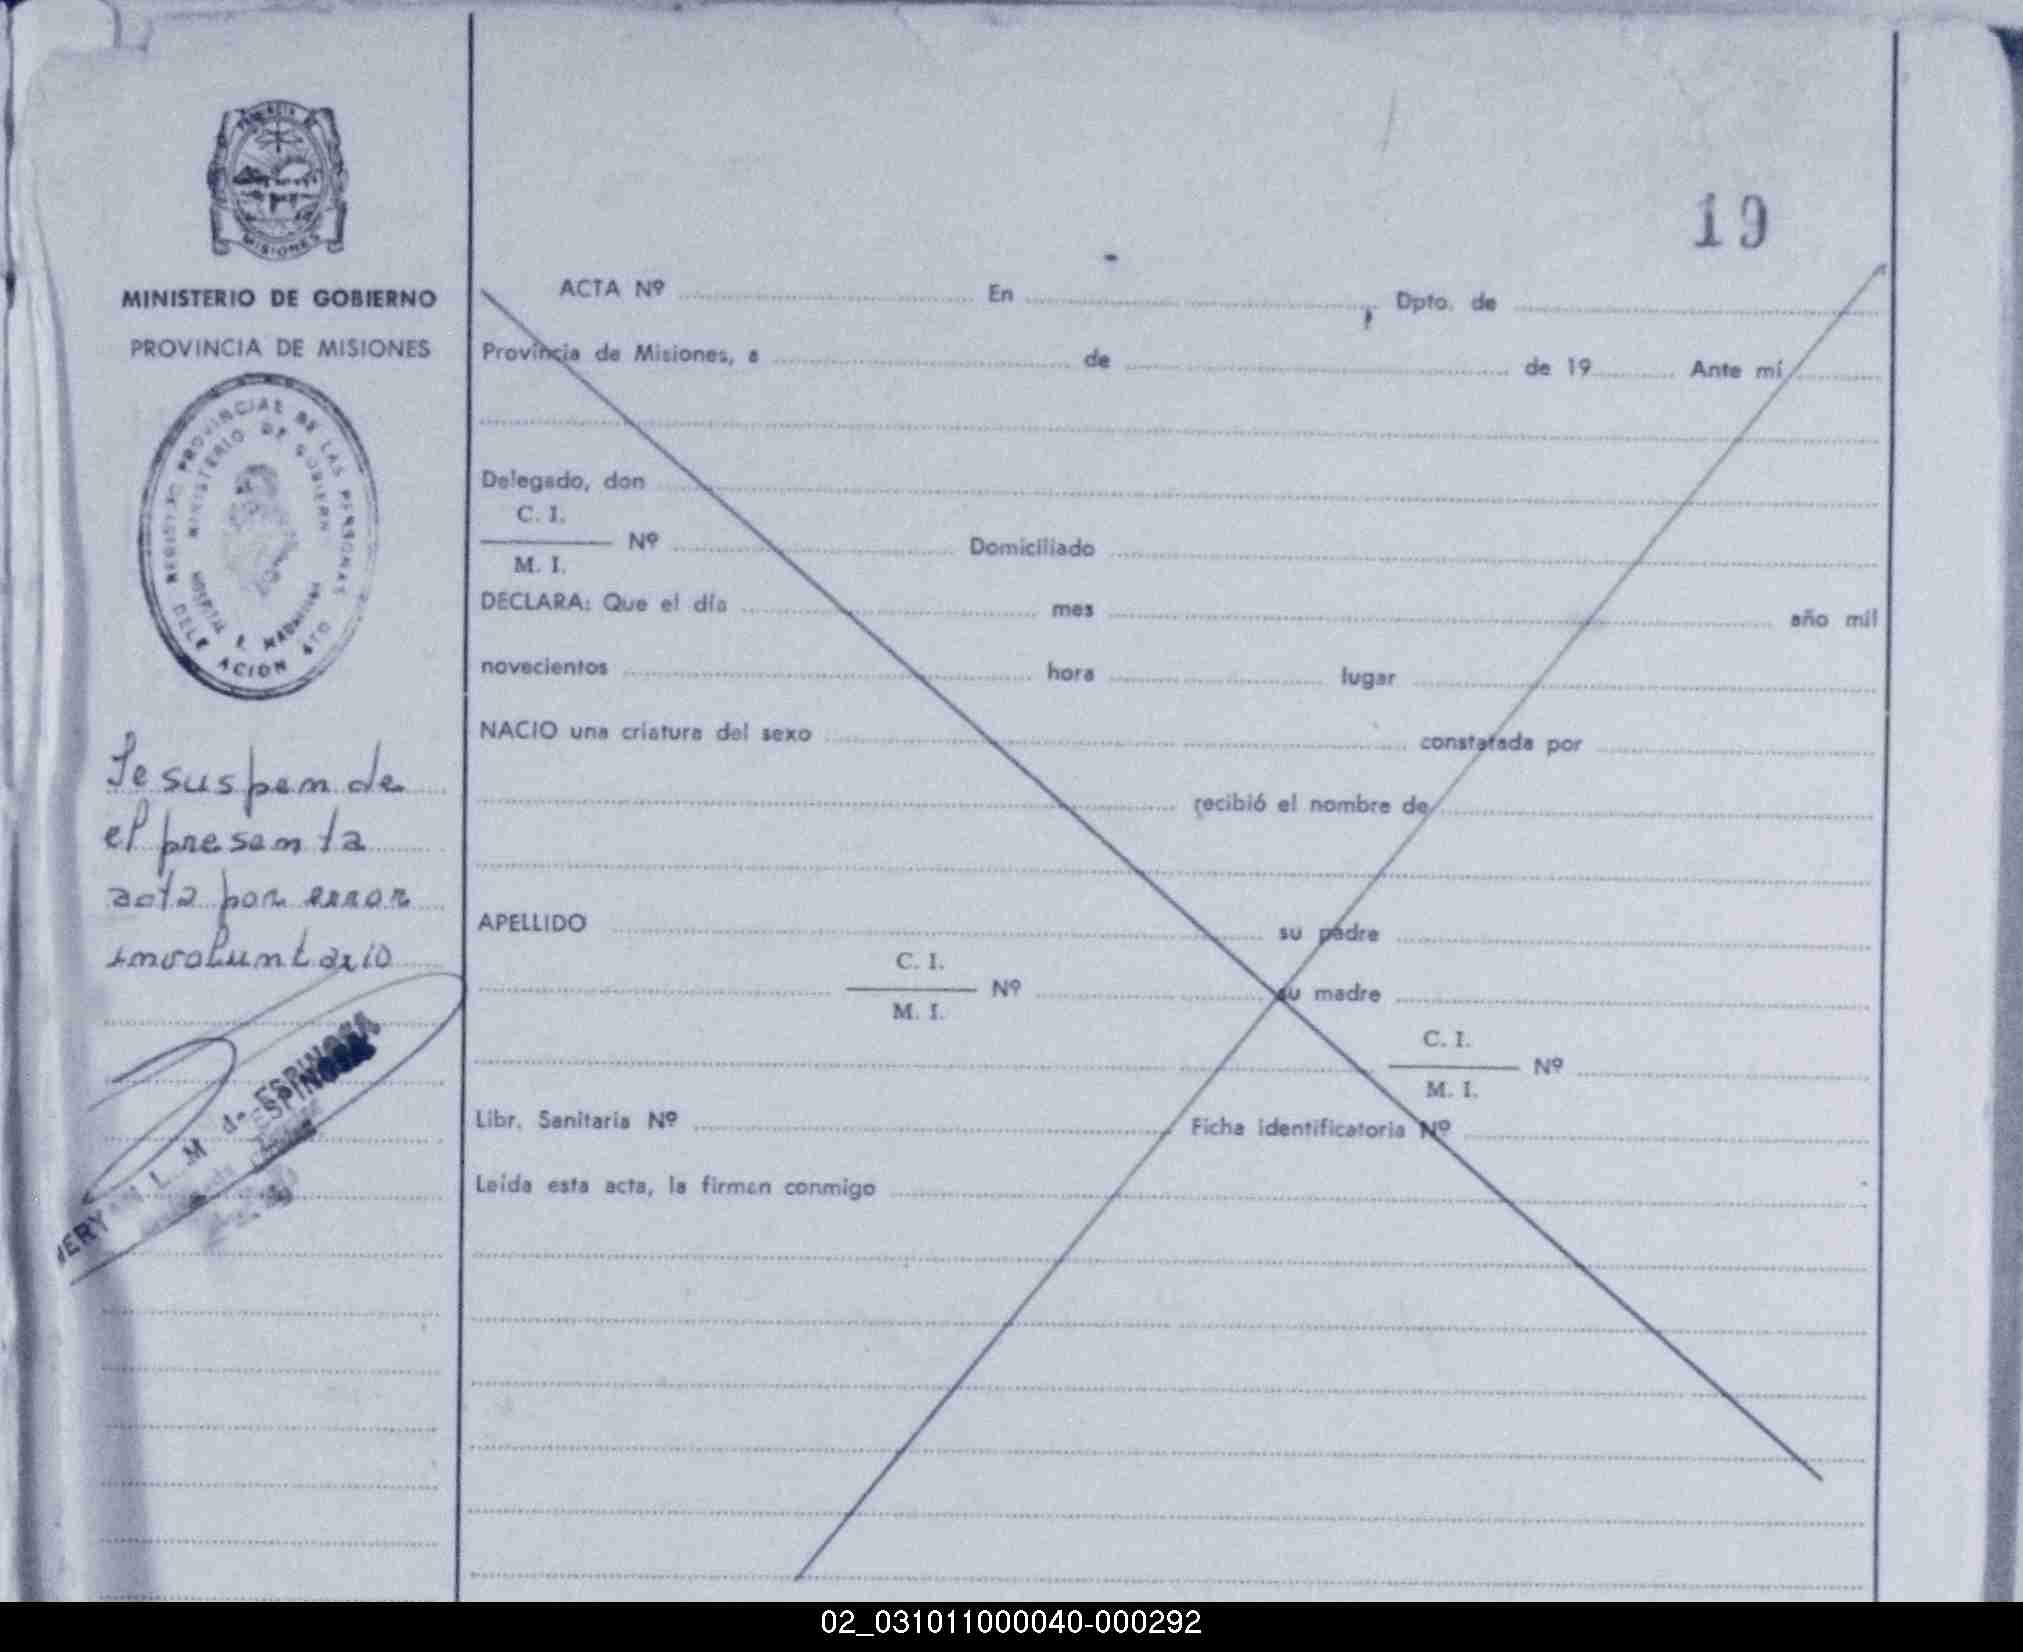 PROVINCIA DE
MISIONES
MINISTERIO DE GOBIERNO
PROVINCIA DE MISIONES
REGISTRO PROVINCIAL DE LAS PERSONAS
MINISTERIO DE GOBIERNO
DELEGACION
Se suspende
el presenta
acta por error
involuntario
L. M de ESPINOSA
19
ACTA Nº En , Dpto. de
Provincia de Misiones, a de de 19 Ante mí
Delegado, don
C. I.
Nº Domiciliado
M. I.
DECLARA: Que el día mes año mil
novecientos hora lugar
NACIO una criatura del sexo constatada por
recibió el nombre de
APELLIDO su padre
C. I.
Nº su madre
M. I.
C. I.
Nº
M. I.
Libr. Sanitaria Nº Ficha identificatoria Nº
Leída esta acta, la firman conmigo
02_031011000040-000292